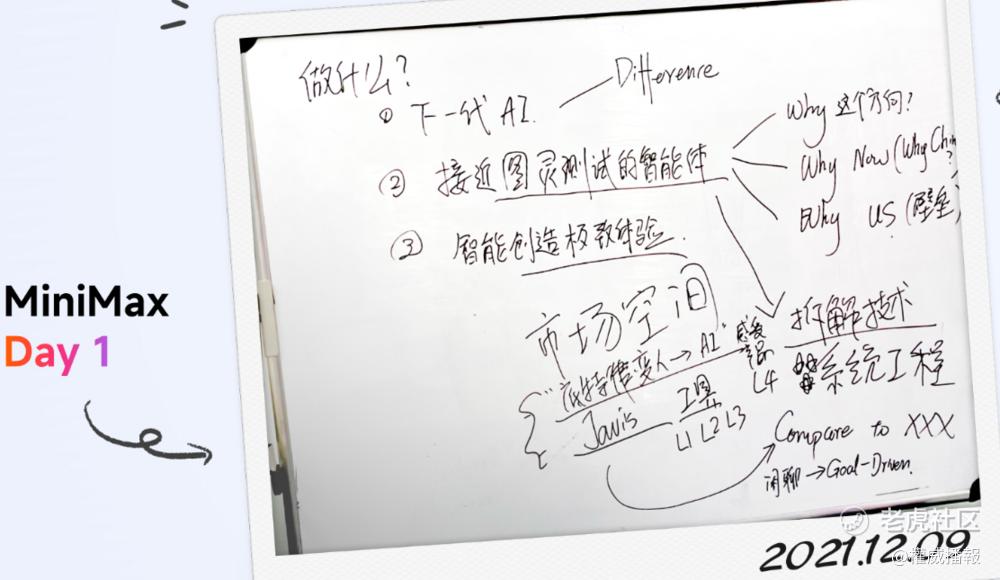 MiniMax
Day 1
做什么?
① 下一代 AI.
Difference
② 接近图灵测试的智能体
Why 这个方向?
Why Now (Why Chin
?
Why US (壁垒)
③ 智能创造极致体验.
市场空间
底特律变人→AI
L4
Javis
工具
L1 L2 L3
拆解技术
系统工程
Compare to XXX
闲聊→Goal-Driven.
2021.12.09
老虎社区
@權威播報